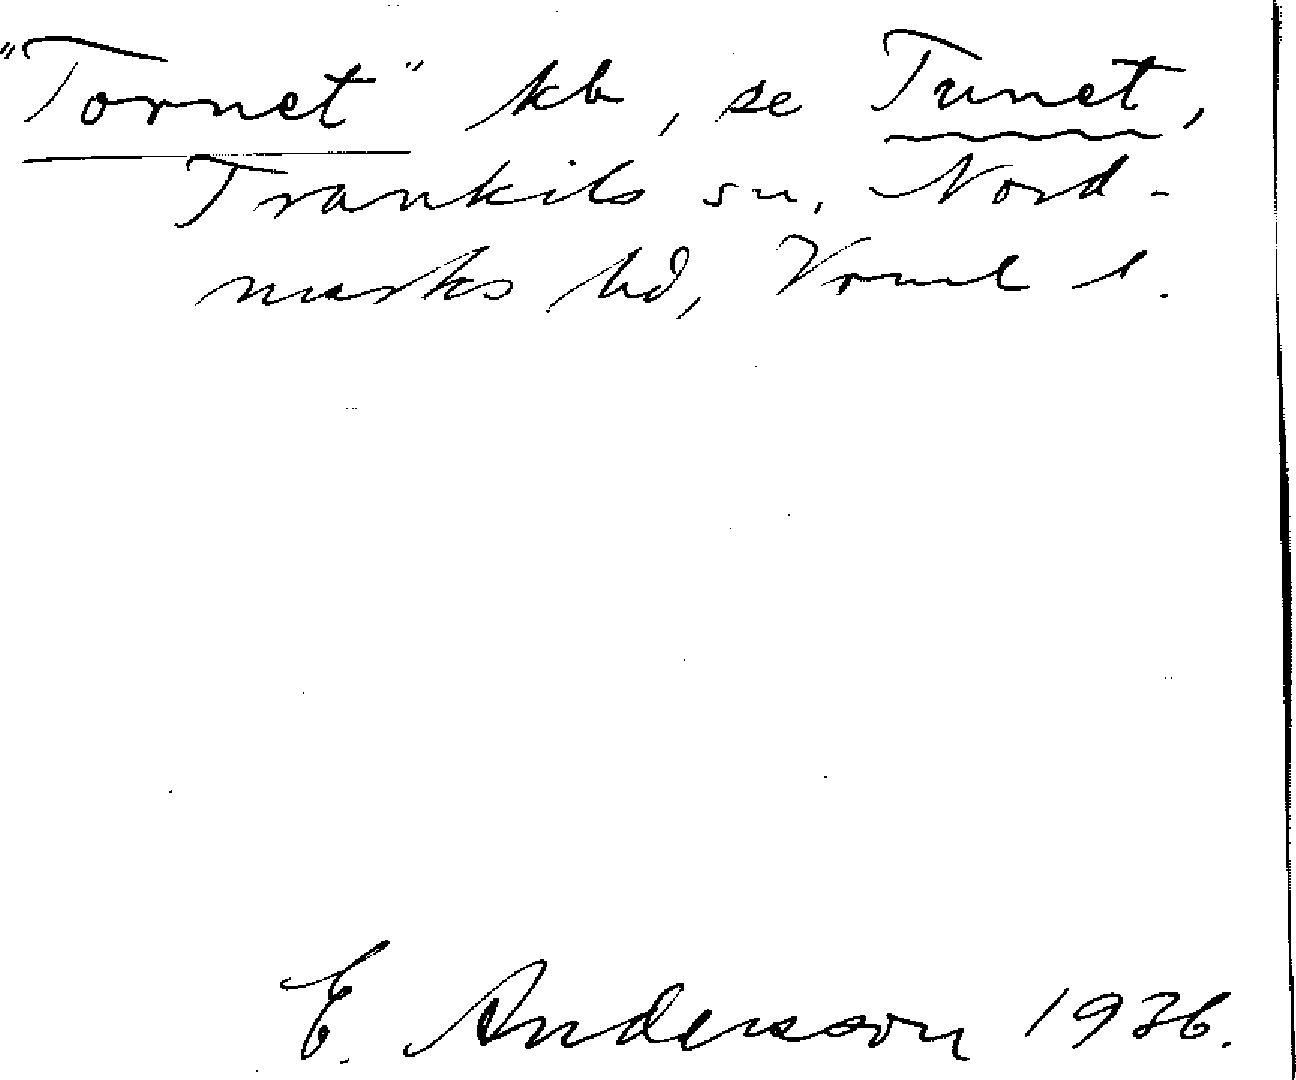 "Tornet" kb, se Tunet,
Trankils sn, Nord-
marks hd, Vrml l.
E. Anderson 1936.